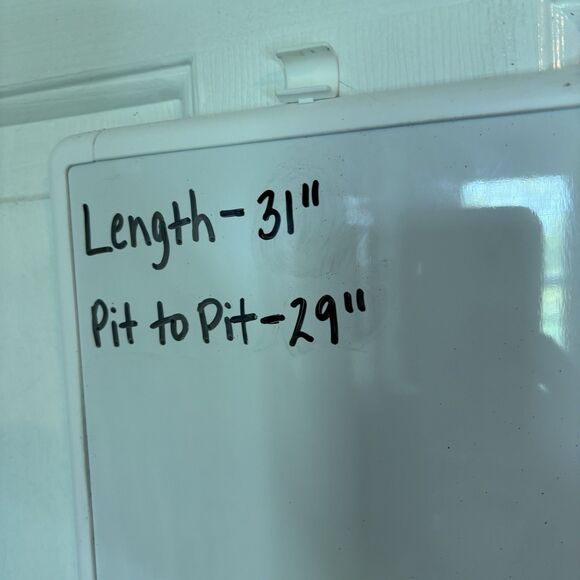 Length - 31"
Pit to Pit - 29"